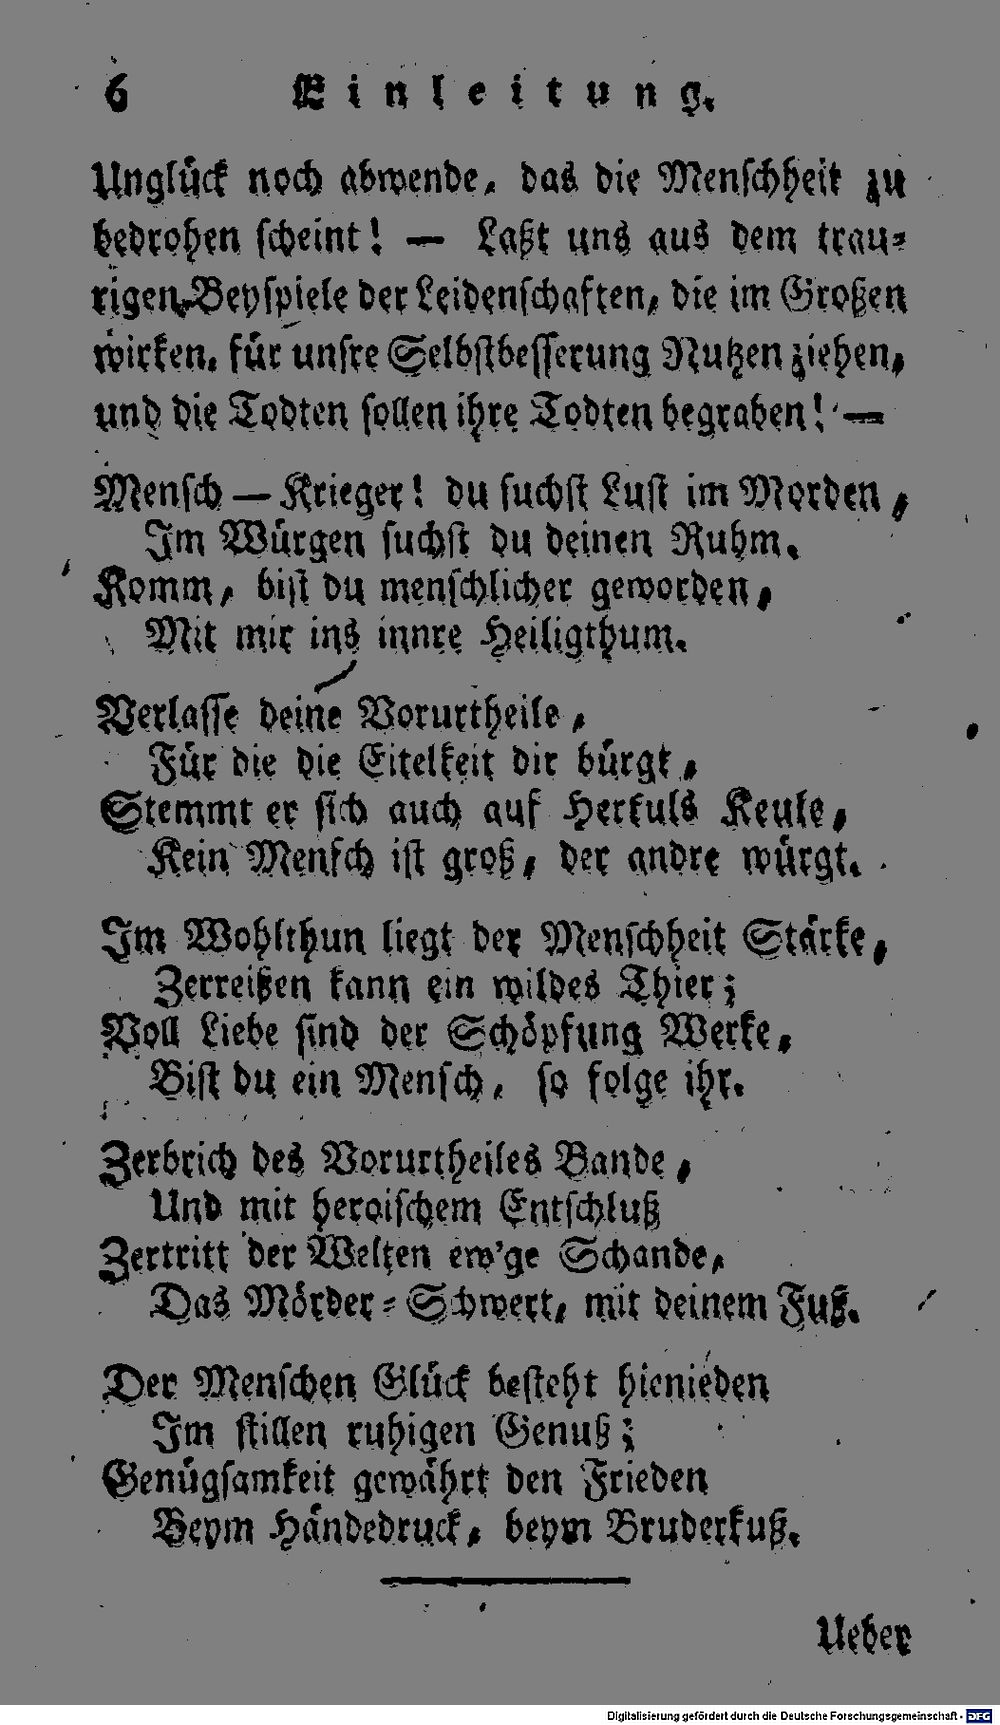 6 Einleitung.
Unglück noch abwende, das die Menschheit zu
bedrohen scheint! — Laßt uns aus dem trau-
rigen Beyspiele der Leidenschaften, die im Großen
wirken, für unsre Selbstbesserung Nutzen ziehen,
und die Todten sollen ihre Todten begraben! —
Mensch — Krieger! du suchst Lust im Morden,
Im Würgen suchst du deinen Ruhm.
Komm, bist du menschlicher geworden,
Mit mir ins innre Heiligthum.
Verlasse deine Vorurtheile,
Für die die Eitelkeit dir bürgt,
Stemmt er sich auch auf Herkuls Keule,
Kein Mensch ist groß, der andre würgt.
Im Wohlthun liegt der Menschheit Stärke,
Zerreißen kann ein wildes Thier;
Voll Liebe sind der Schöpfung Werke,
Bist du ein Mensch, so folge ihr.
Zerbrich des Vorurtheiles Bande,
Und mit heroischem Entschluß
Zertritt der Welten ew'ge Schande,
Das Mörder-Schwert, mit deinem Fuß.
Der Menschen Glück besteht hienieden
Im stillen ruhigen Genuß;
Genügsamkeit gewährt den Frieden
Beym Händedruck, beym Bruderkuß.
Ueber
Digitalisierung gefördert durch die Deutsche Forschungsgemeinschaft - DFG